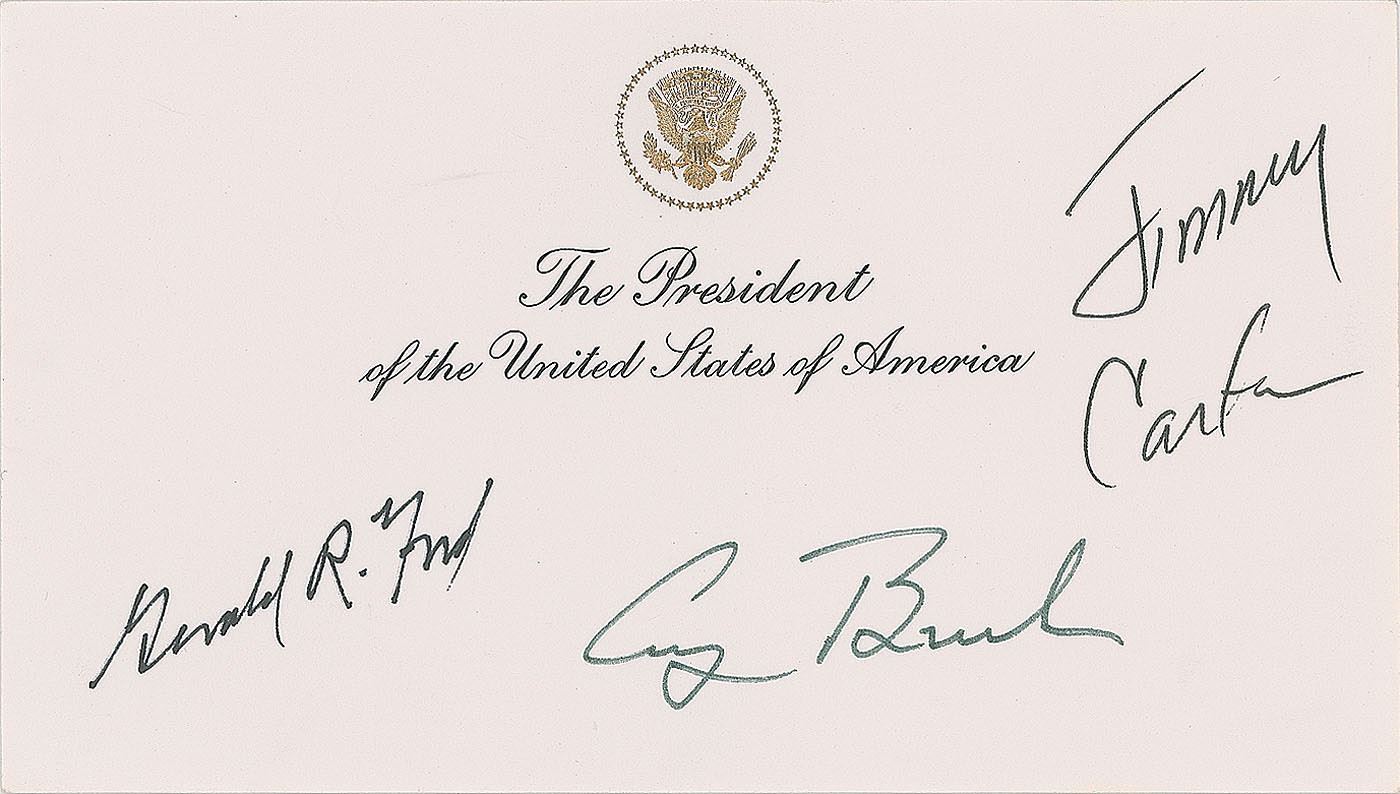 The President
of the United States of America
Jimmy
Carter
Gerald R. Ford
George Bush